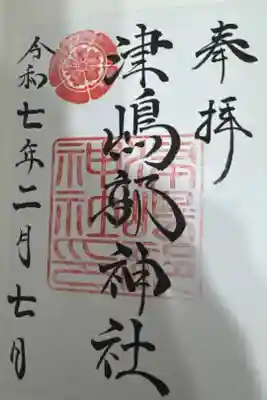 奉拝
津嶋部神社
令和七年二月七日